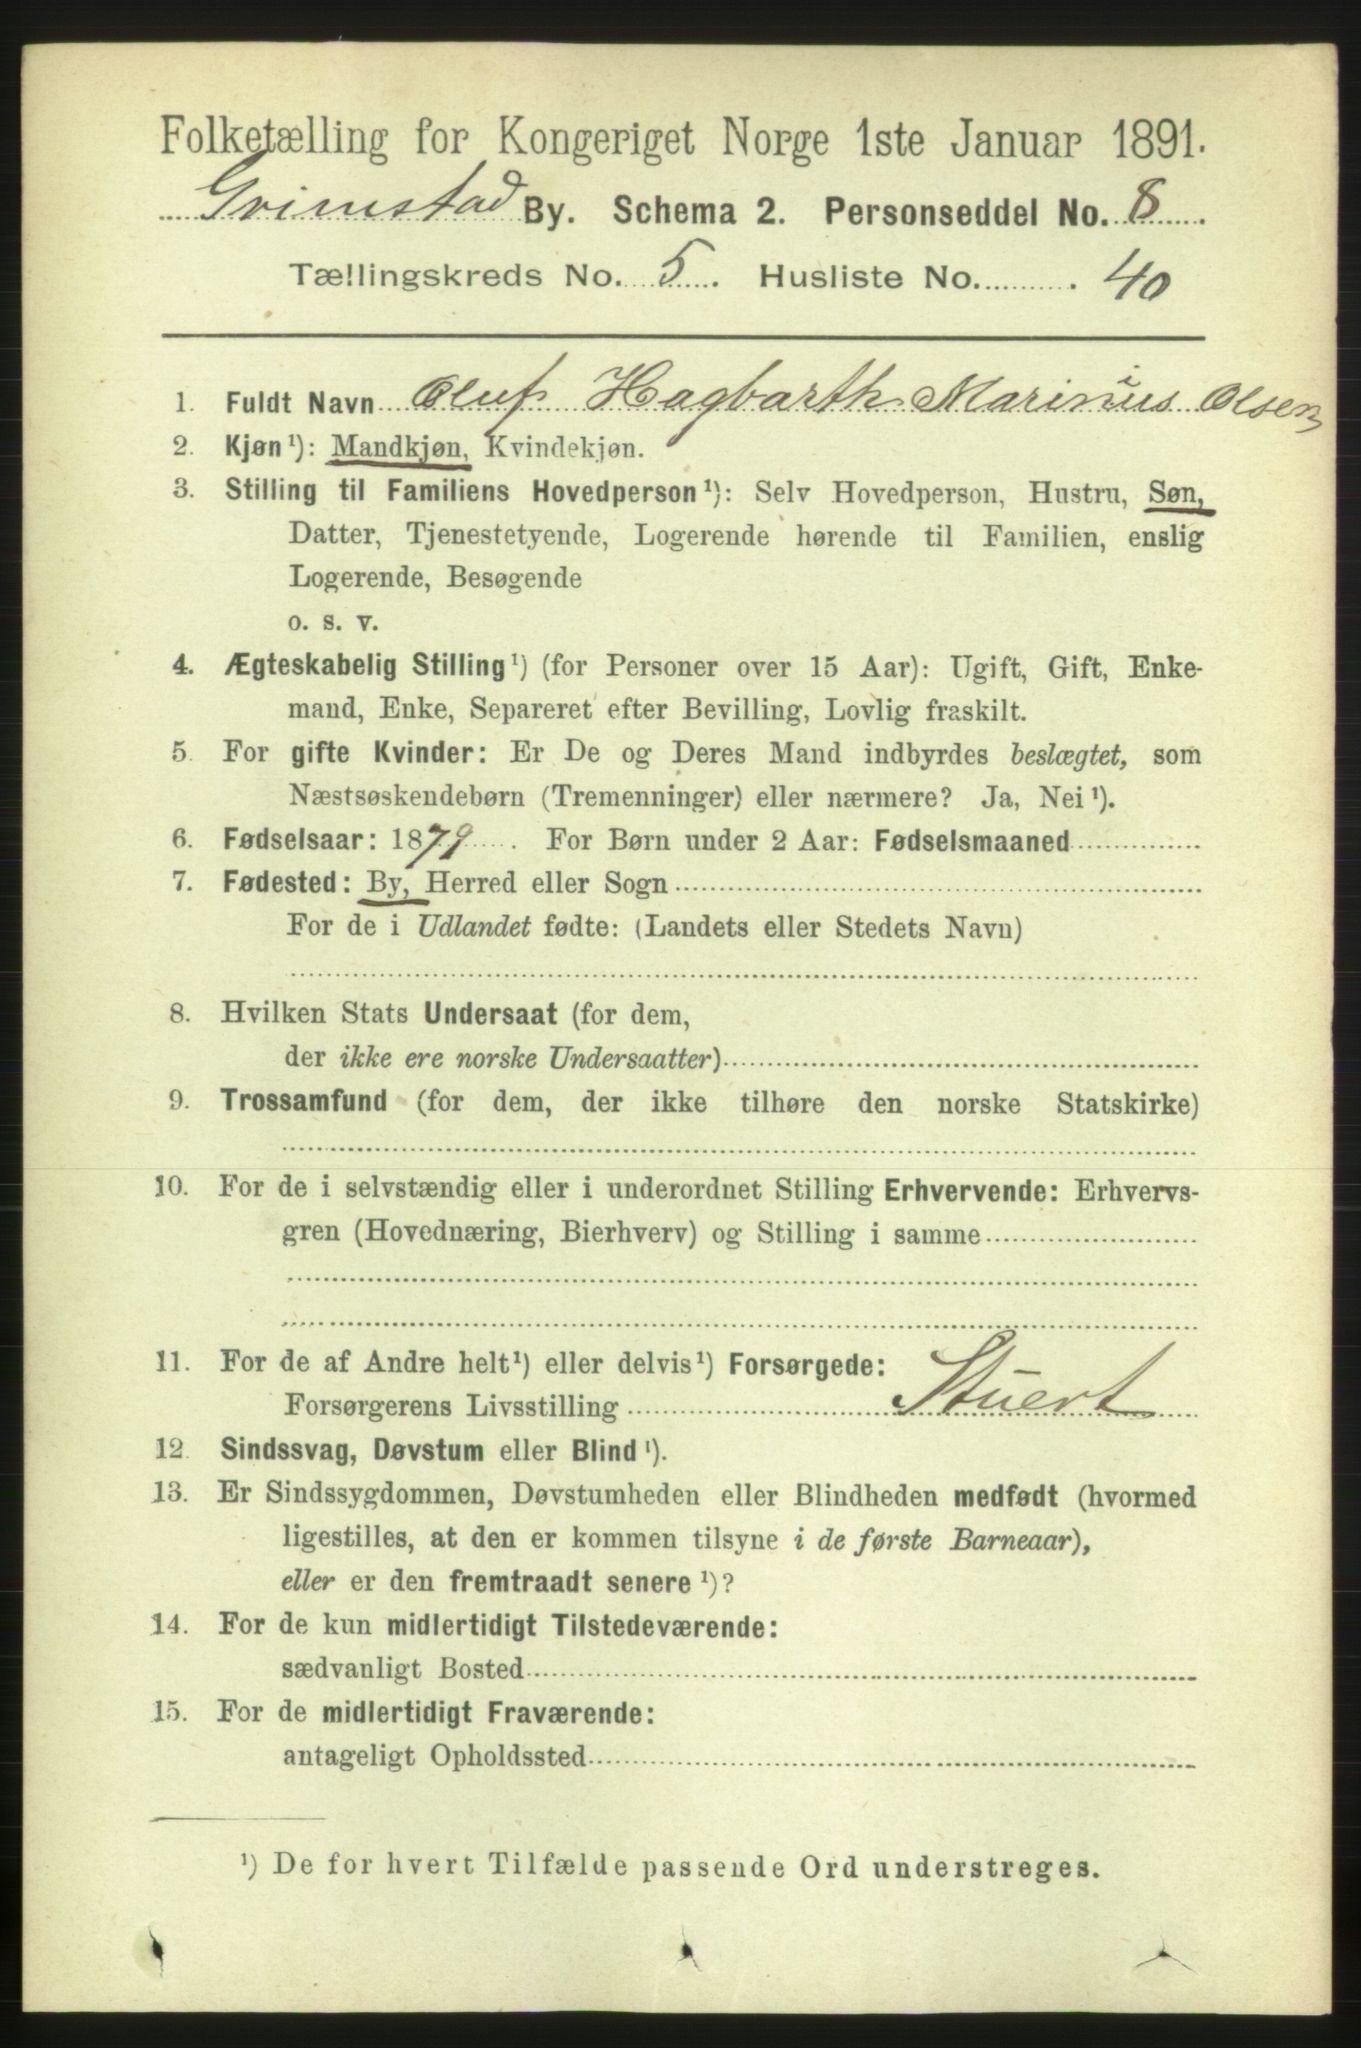 Folketælling for Kongeriget Norge 1ste Januar 1891.
Grimstad By. Schema 2. Personseddel No. 8.
Tællingskreds No. 5. Husliste No. 40.
1. Fuldt Navn Oluf Hagbarth Marinius Olsen
2. Kjøn¹): Mandkjøn, Kvindekjøn.
3. Stilling til Familiens Hovedperson¹): Selv Hovedperson, Hustru, Søn,
Datter, Tjenestetyende, Logerende hørende til Familien, enslig
Logerende, Besøgende
o. s. v.
4. Ægteskabelig Stilling¹) (for Personer over 15 Aar): Ugift, Gift, Enke-
mand, Enke, Separeret efter Bevilling, Lovlig fraskilt.
5. For gifte Kvinder: Er De og Deres Mand indbyrdes beslægtet, som
Næstsøskendebørn (Tremenninger) eller nærmere? Ja, Nei¹).
6. Fødselsaar: 1879. For Børn under 2 Aar: Fødselsmaaned
7. Fødested: By, Herred eller Sogn
For de i Udlandet fødte: (Landets eller Stedets Navn)
8. Hvilken Stats Undersaat (for dem,
der ikke ere norske Undersaatter)
9. Trossamfund (for dem, der ikke tilhøre den norske Statskirke)
10. For de i selvstændig eller i underordnet Stilling Erhvervende: Erhvervs-
gren (Hovednæring, Bierhverv) og Stilling i samme
11. For de af Andre helt¹) eller delvis¹) Forsørgede:
Forsørgerens Livsstilling Stuert
12. Sindssvag, Døvstum eller Blind¹).
13. Er Sindssygdommen, Døvstumheden eller Blindheden medfødt (hvormed
ligestilles, at den er kommen tilsyne i de første Barneaar),
eller er den fremtraadt senere¹)?
14. For de kun midlertidigt Tilstedeværende:
sædvanligt Bosted
15. For de midlertidigt Fraværende:
antageligt Opholdssted
¹) De for hvert Tilfælde passende Ord understreges.